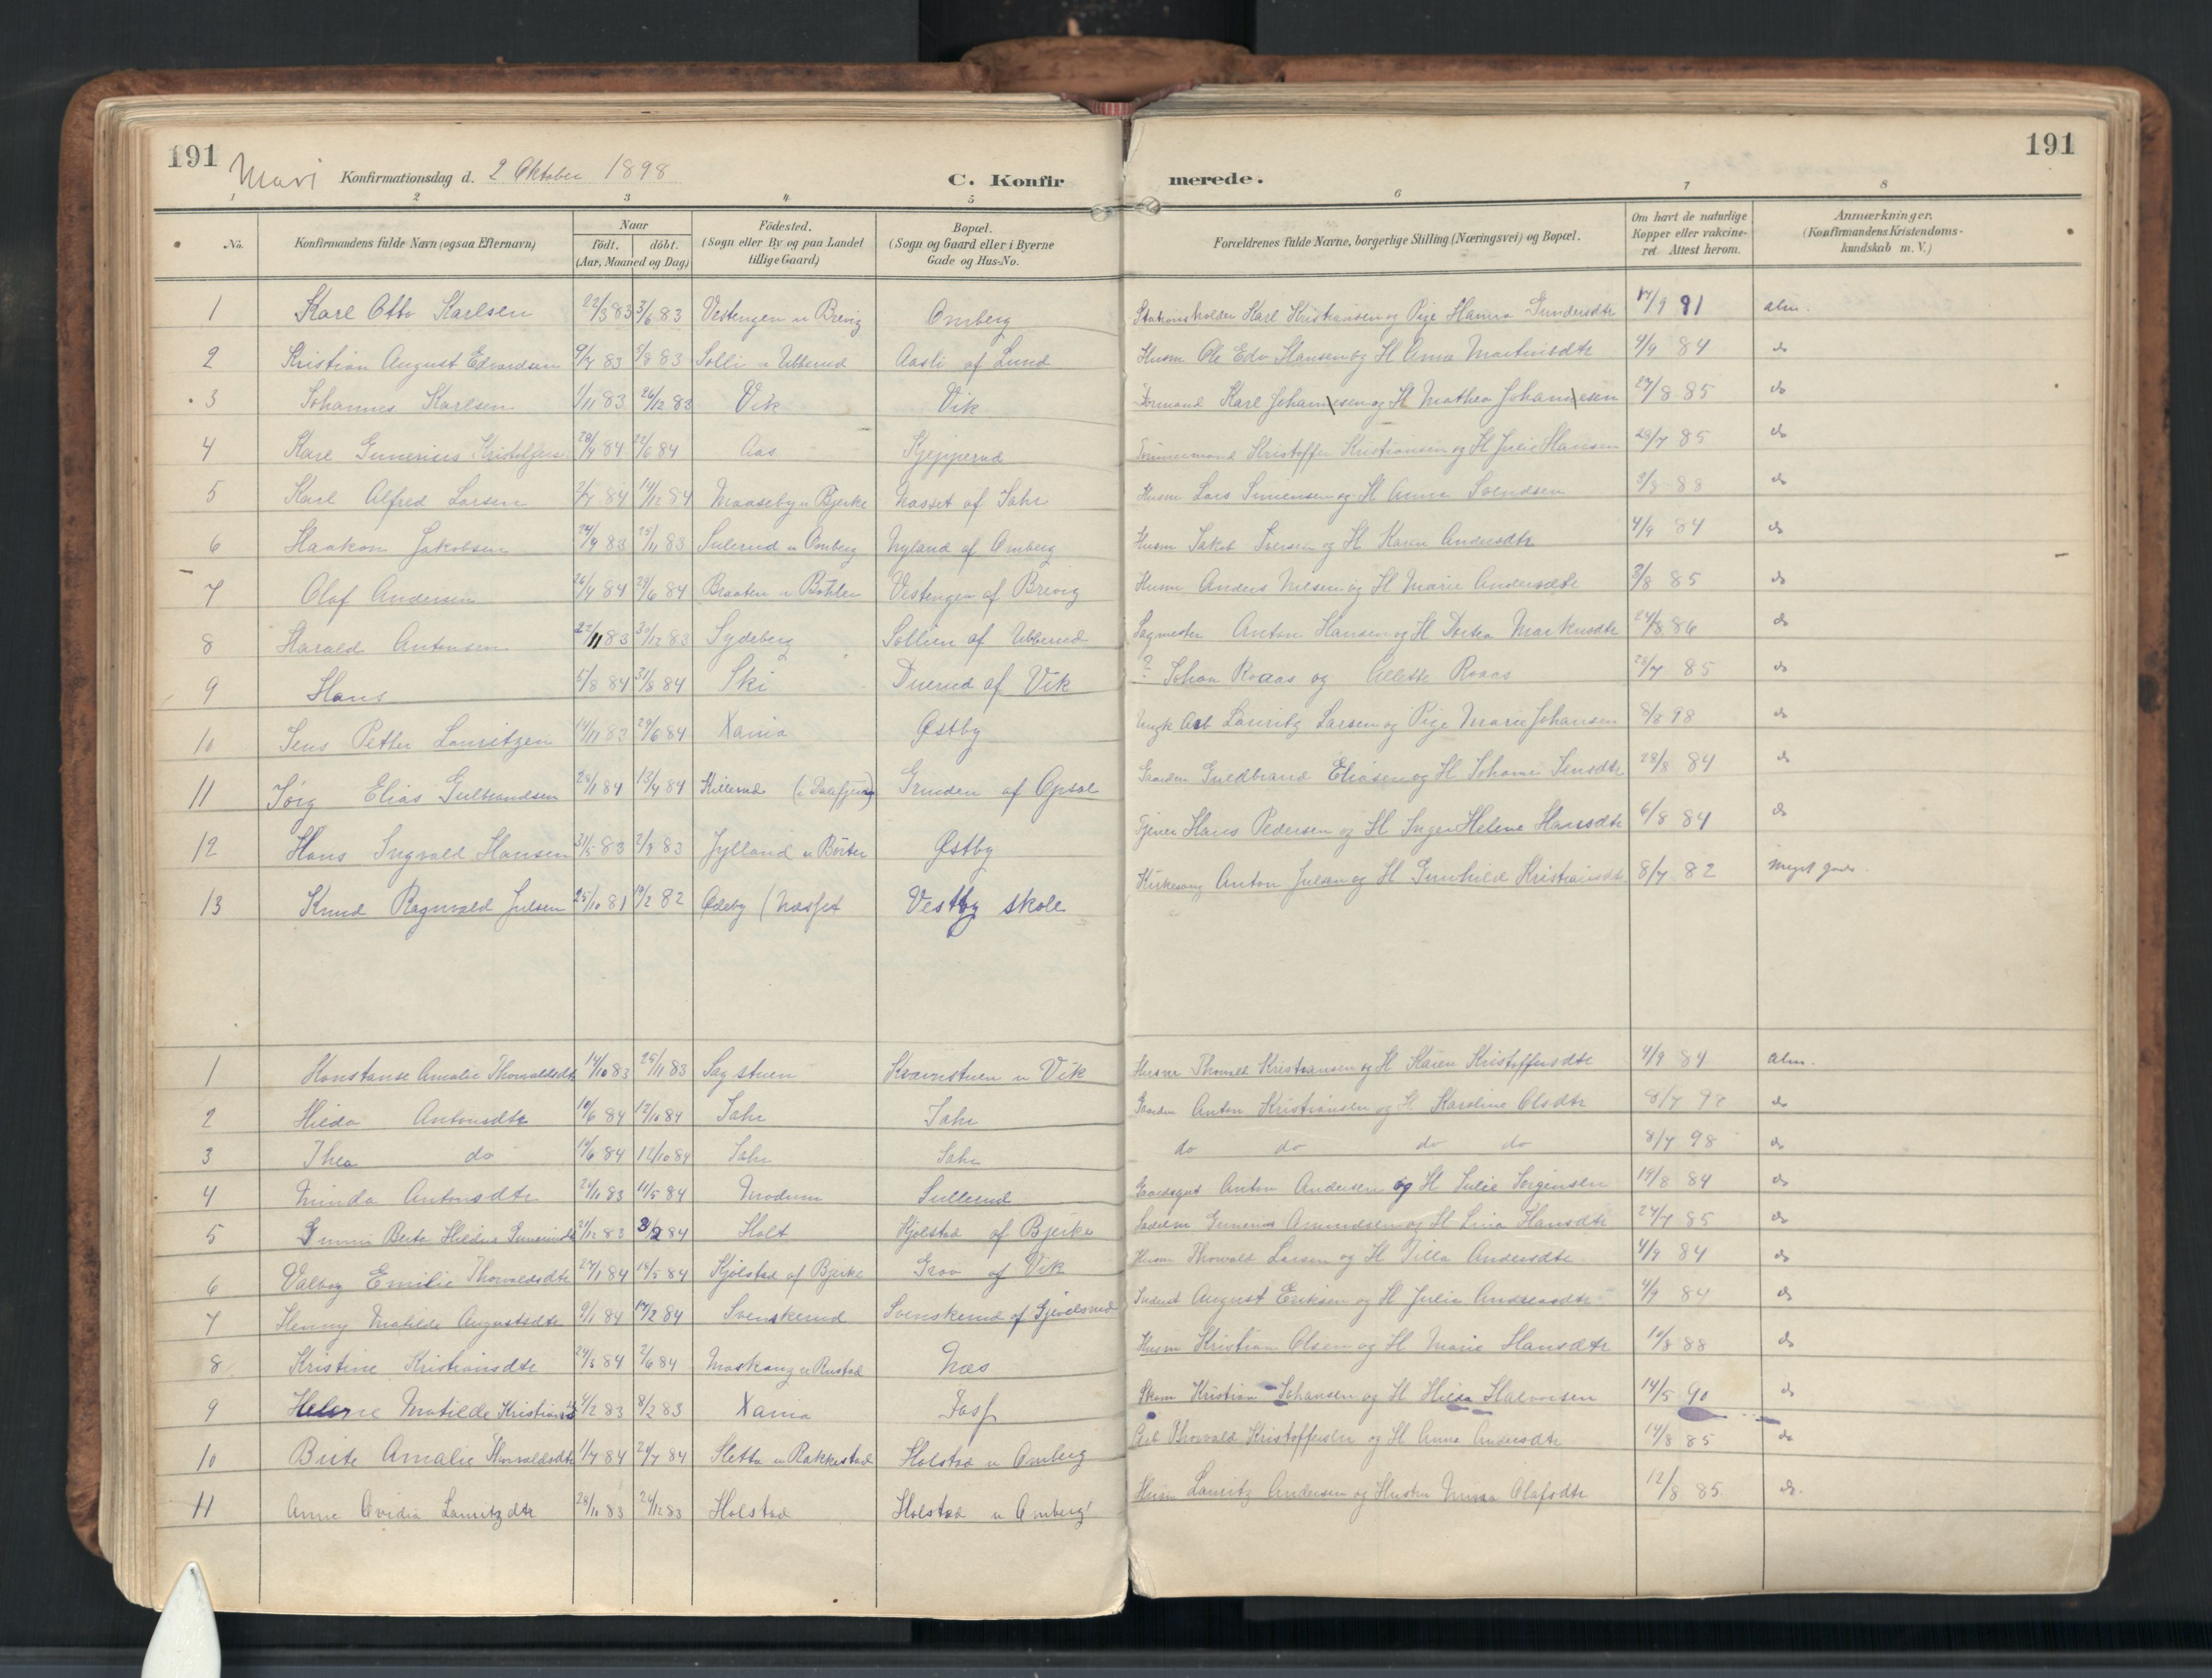 191
Mari Konfirmationsdag d. 2 Oktober 1898
C. Konfirmerede.
191
1 2 3 4 5 6 7 8
No. Konfirmandens fulde Navn (ogsaa Efternavn) Naar födt. döbt. (Aar, Maaned og Dag) Födested. (Sogn eller By og paa Landet tillige Gaard) Bopæl. (Sogn og Gaard eller i Byerne Gade og Hus-No. Forældrenes fulde Navne, borgerlige Stilling (Næringsvei) og Bopæl. Om havt de naturlige Kopper eller vakcineret Attest herom. Anmærkninger. (Konfirmandens Kristendomskundskab m. V.)
1 Karl Otto Karlsen 22/3 83 3/6 83 Vestengen u Brevig Omberg Stationsholder Karl Kristiansen og Pige Hanna Gundersdtr 17/9 91 alm.
2 Kristian August Edvardsen 9/7 83 5/8 83 Solli u Ubberud Aasli af Lund Husm Ole Edv Hansen og H Anna Martinisdtr 4/9 84 do
3 Johannes Karlsen 1/11 83 26/12 83 Vik Vik Formand Karl Johannesen og H Mathea Johannesen 27/8 85 do
4 Karl Gunerius Kristoffers 28/4 84 22/6 84 Aas Kjepperud Tømmermand Kristoffer Kristiansen og H Julie Hansen 29/7 85 do
5 Karl Alfred Larsen 2/7 84 14/12 84 Maaseby u Bjerke Næsset af Sahr Husm Lars Simensen og H Anna Svendsen 3/8 88 do
6 Haakon Jakobsen 24/9 83 25/11 83 Sulerud u Omberg Nyland af Omberg Husm Jakob Iversen og H Karen Andersdtr 4/9 84 do
7 Olaf Andersen 26/4 84 29/6 84 Braaten u Böhler Vestengen af Brevig Husm Anders Nilsen og H Marie Andersdtr 3/8 85 do
8 Harald Antonsen 22/11 83 30/12 83 Sydeberg Sollien af Ubberud Sagmester Anton Hansen og H Dortea Markusdtr 24/8 86 do
9 Hans 5/8 84 31/8 84 Ski Duerud af Vik ? Johan Roaas og Allette Roaas 25/7 85 do
10 Jens Petter Lauritzen 14/11 83 29/6 84 Xania Østby Ungk Arb Lauritz Larsen og Pige Marie Johansen 8/8 98 do
11 Jörg Elias Gulbrandsen 28/1 84 13/4 84 Killerud Grinden af Opsal Gaardm Guldbrand Eliasen og H Johanne Jensdtr 28/8 84 do
12 Hans Ingvald Hansen 31/5 83 2/9 83 Jylland u Börter Østby Tjener Hans Pedersen og H Inger Helene Hansdtr 6/8 84 do
13 Knud Ragnvald Julsen 25/10 81 19/2 82 Ødeby (Næsset Vestby skole Kirkesang Anton Julsen og H Gunhild Kristiansdtr 8/7 82 Meget god.
1 Konstanse Amalie Thorvaldsdtr 14/10 83 25/11 83 Sagstuen Kvernstuen u Vik Husm Thorvald Kristiansen og H Karen Kristoffersdtr 4/9 84 alm.
2 Hilda Antonsdtr 10/6 84 12/10 84 Sahr Sahr Gaardm Anton Kristiansen og H Karoline Olsdtr 8/7 98 do
3 Thea do 10/6 84 12/10 84 Sahr Sahr do do do do 8/7 98 do
4 Minda Antonsdtr 24/11 83 11/5 84 Modum Sullerud Gaardsgut Anton Andersen og H Julie Jörgensen 19/8 84 do
5 Gunni Berte Hilda 21/12 83 3/2 84 Holt Kjölstad af Bjerke Gunerius Amundsen og H Lina Hansdtr 24/7 85 do
6 Valborg Emilie Thorvaldsdtr 27/1 84 18/5 84 Kjölstad af Bjerke Grav af Vik Husm Thorvald Larsen og H Tilla Andersdtr 4/9 84 do
7 Henny Matilde Augustsdtr 9/1 84 17/2 84 Svenskerud Svenskerud af Gjevelsrud Inderst August Eriksen og H Julie Andreasdtr 4/9 84 do
8 Kristine Kristiansdtr 24/3 84 2/6 84 Moskaug u Rustad Næs Husm Kristian Olsen og H Marie Hansdtr 10/8 88 do
9 Helene Matilde Kristians 4/2 83 8/2 83 Xania Fosf Skom Kristian Johansen og H Hilda Halvorsen 14/5 90 do
10 Berte Amalie Thorvaldsdtr 1/7 84 27/7 84 Sletta u Rakkestad Holstad u Omberg Arb Thorvald Kristoffersen og H Anna Andersdtr 14/8 85 do
11 Anne Ovidia Lauritzdtr 28/11 83 26/12 83 Holstad Holstad u Omberg Husm Lauritz Andersen og Hustru Mina Olafsdtr 12/8 85 do.